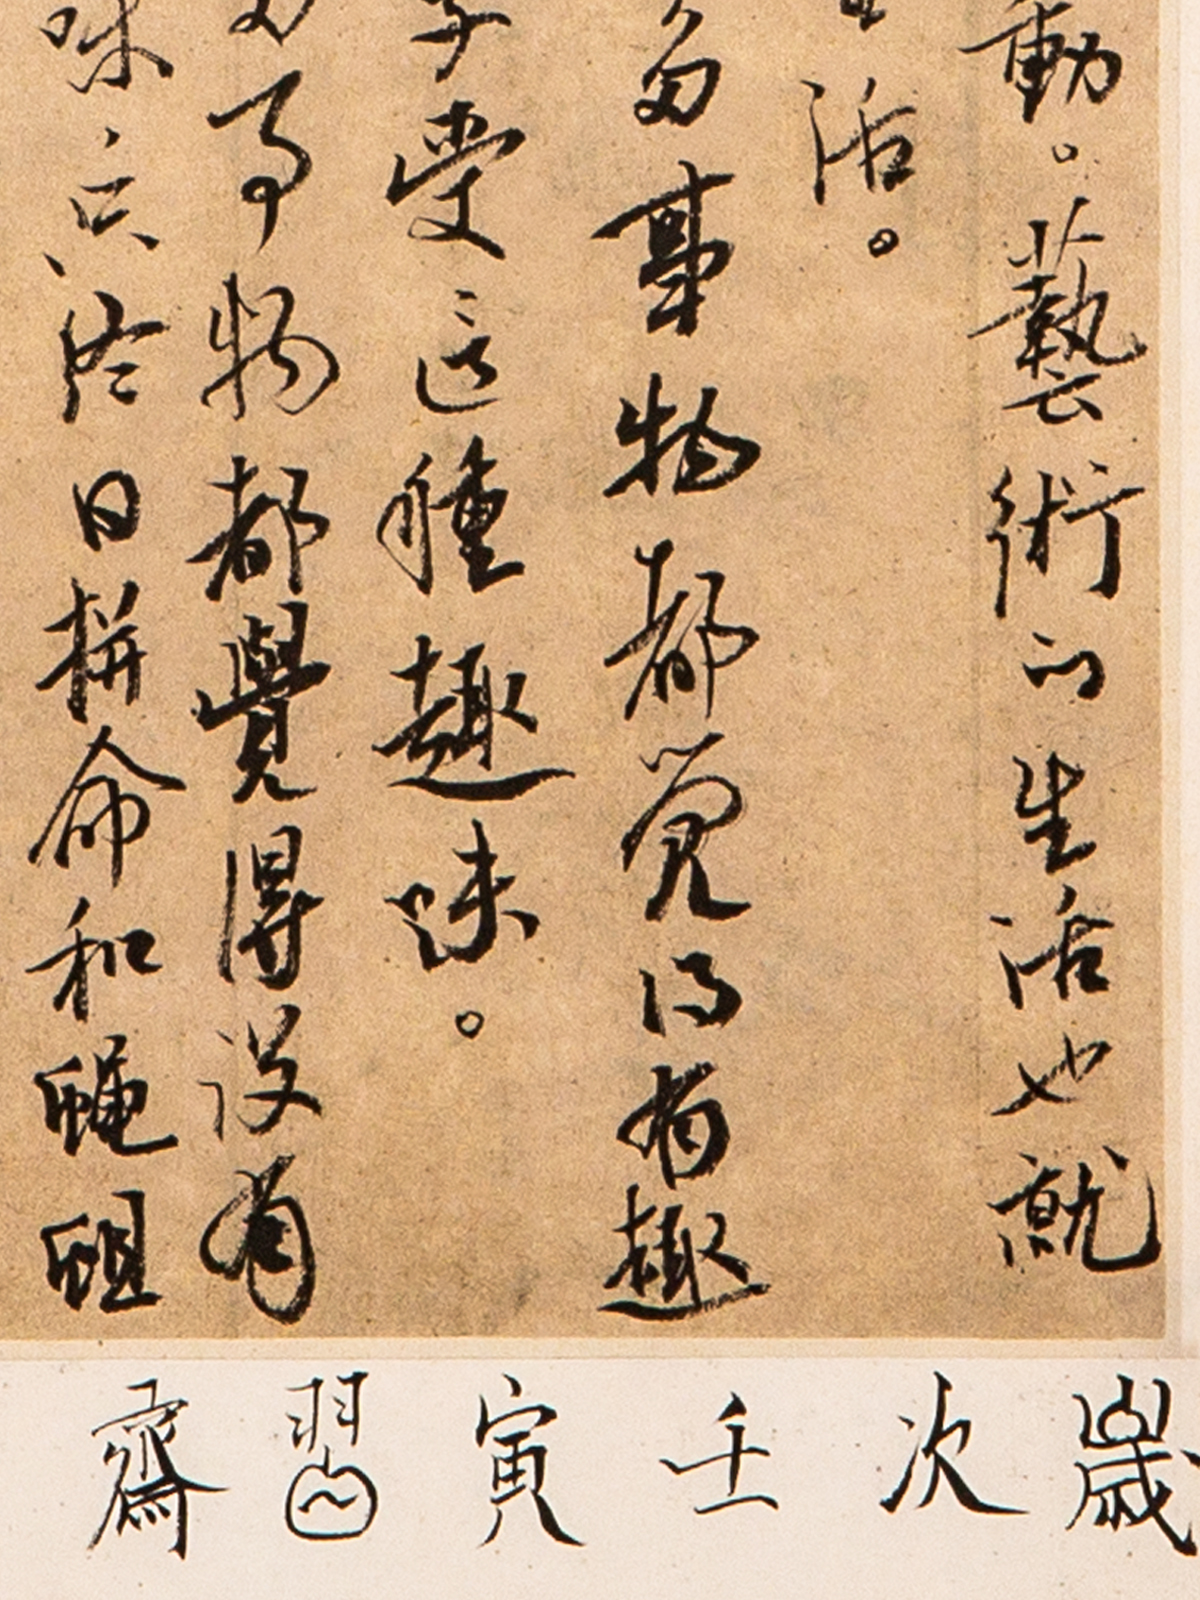 動。藝術的生活也就
活。
多事物都覺得有趣
受這種趣味。
事物都覺得没有
味只終日拼命和蠅蛆
歲次壬寅習齋